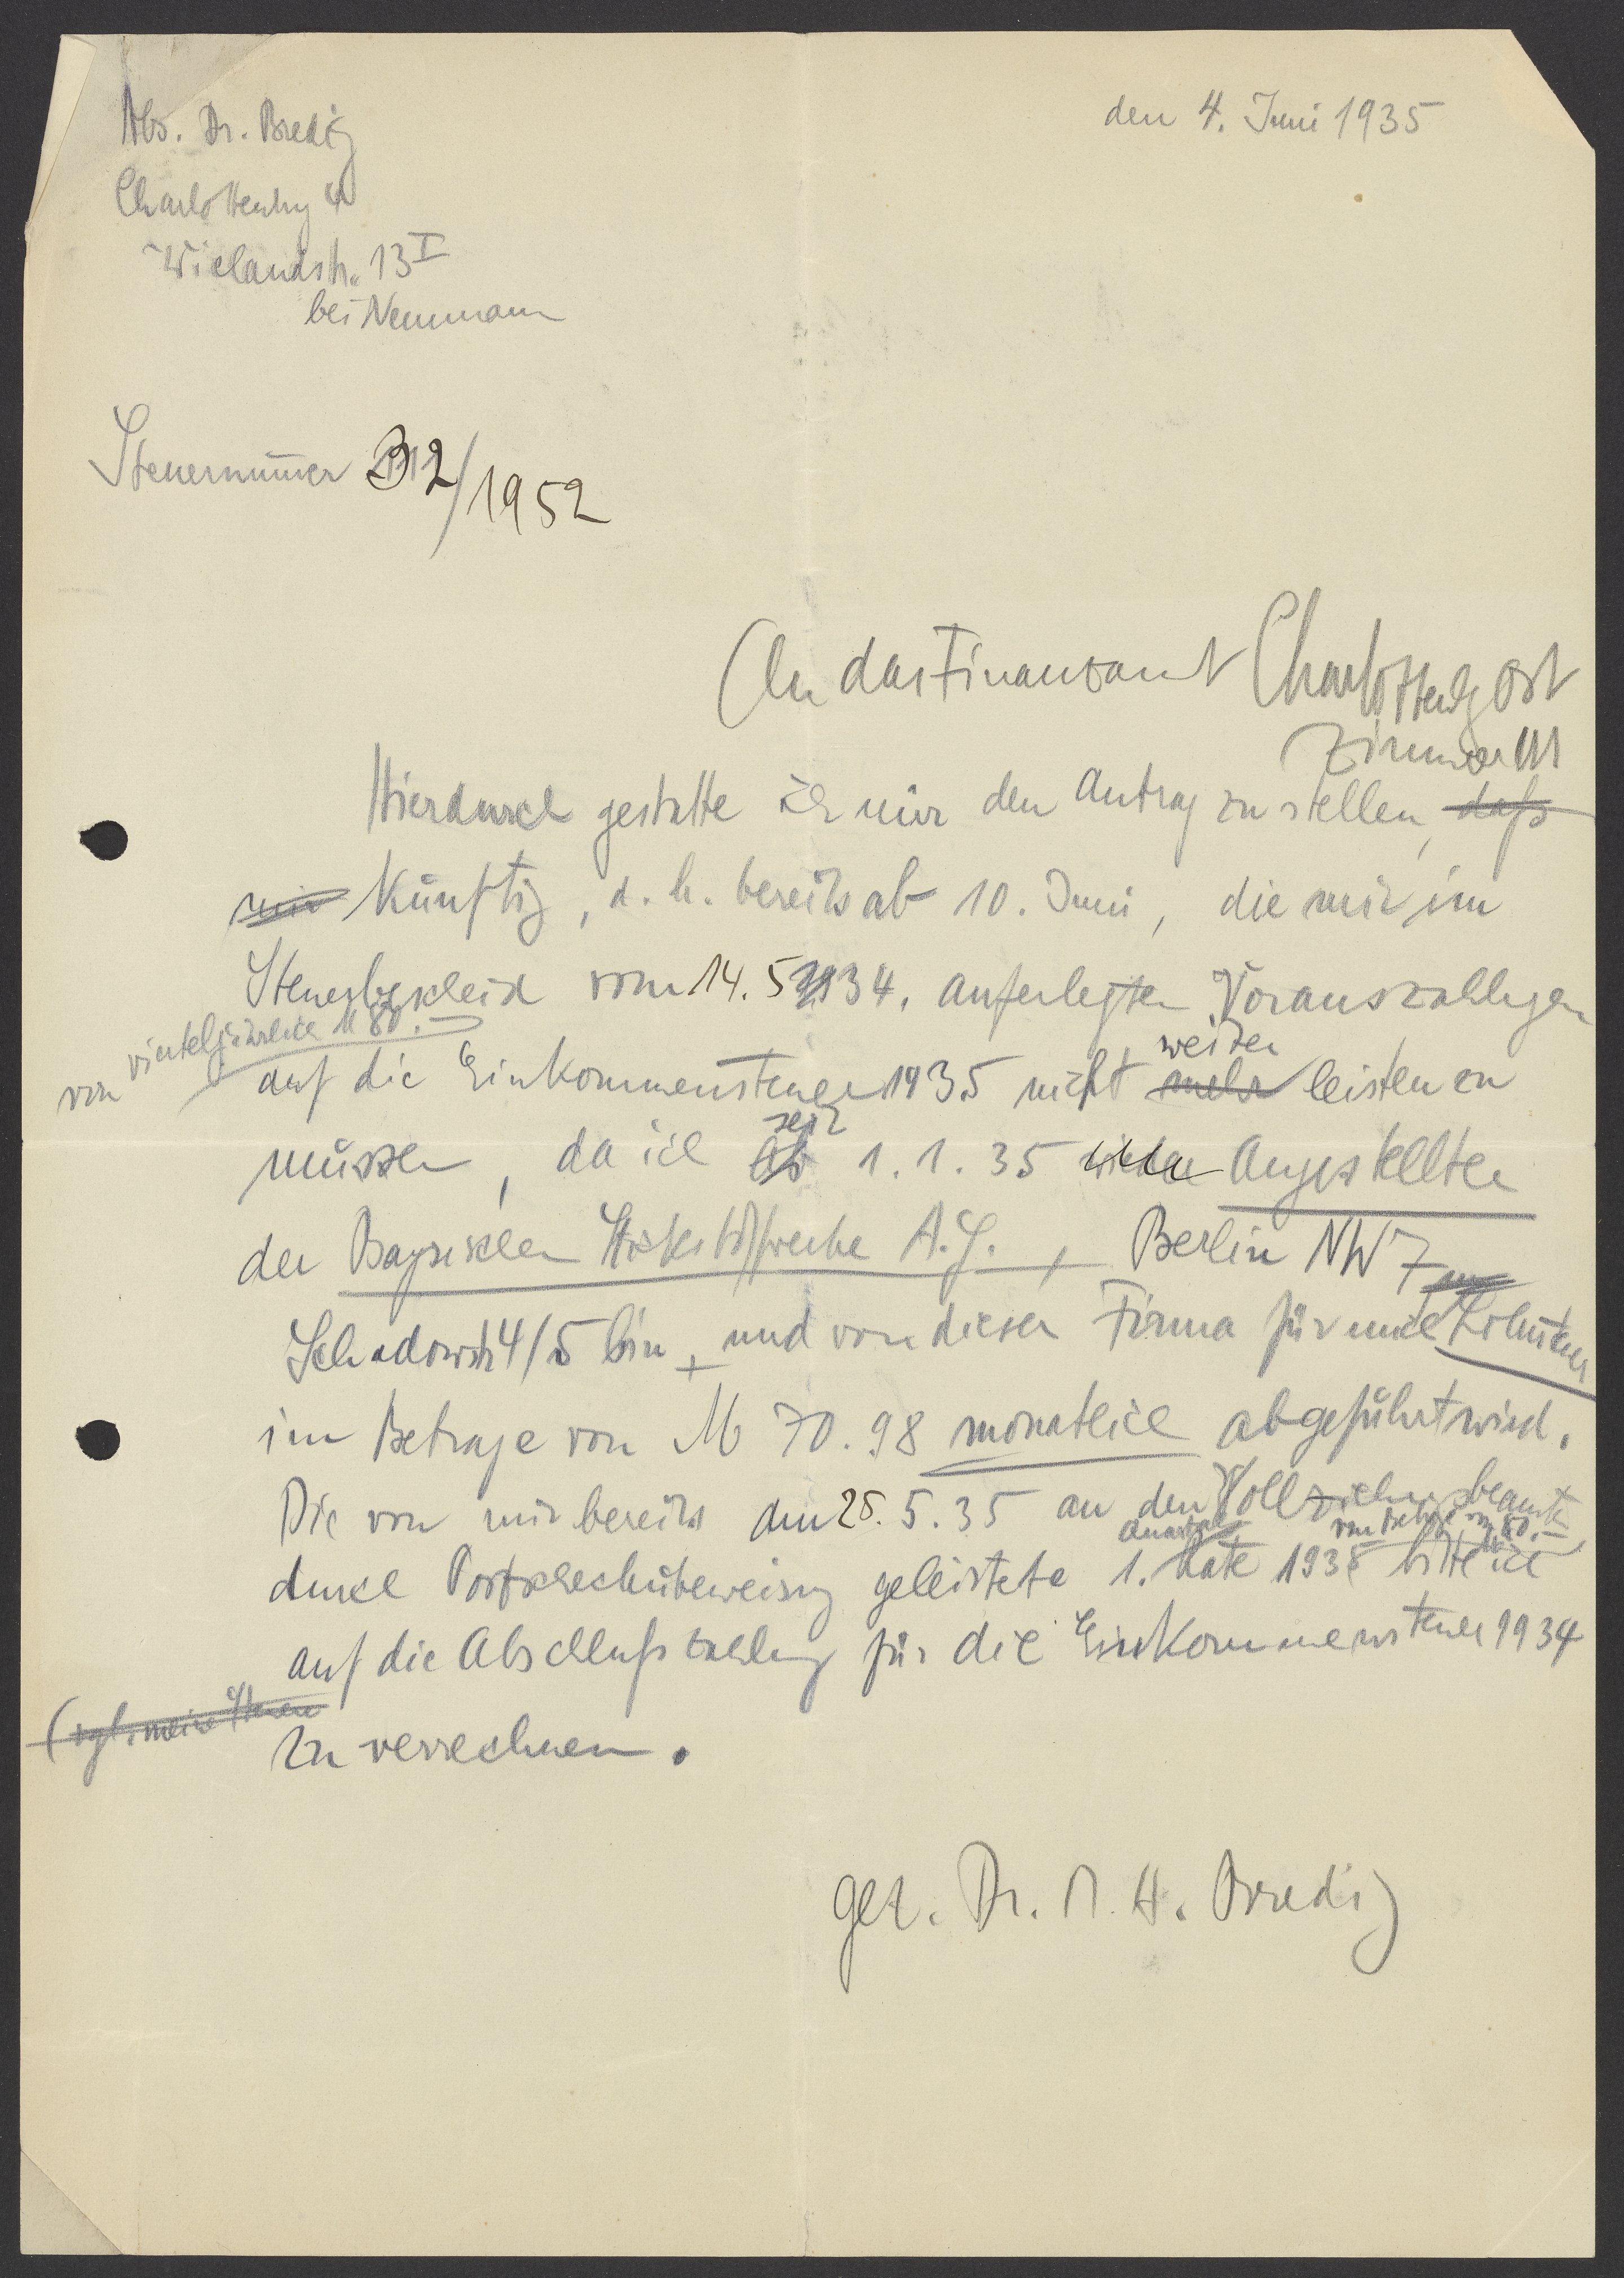 Abs. Dr. Bredig
Charlottenbg 4
Wielandstr. 13 I
bei Neumann
den 4. Juni 1935
Steuernummer 32/1952
An das Finanzamt Charlottenbg Ost
Zimmer 111
Hierdurch gestatte ich mir den Antrag zu stellen, daß
mir künftig, d. h. bereits ab 10. Juni, die mir im
Steuerbescheid vom 14. 5 1934. auferlegten Vorauszahlungen
von vierteljährlich M 80.-
auf die Einkommensteuer 1935 nicht mehr weiter leisten zu
müssen, da ich ab seit 1. 1. 35 Angestellter
der Bayrischen Stickstoffwerke A.G., Berlin NW 7
Schadowstr 4/5 bin, und von dieser Firma für mich Lohnsteuer
im Betrage von M 70.98 monatlich abgeführt wird.
Die von mir bereits am 25. 5. 35 an den Vollziehungsbeamten
durch Postscheckübeweisung geleistete 1. Quartals Rate 1935 vom Betrage von M 80.- bitte ich
auf die Abschlußzahlung für die Einkommensteuer 1934
(vgl. meine Steuer
zu verrechnen.
gez. Dr. M. H. Bredig